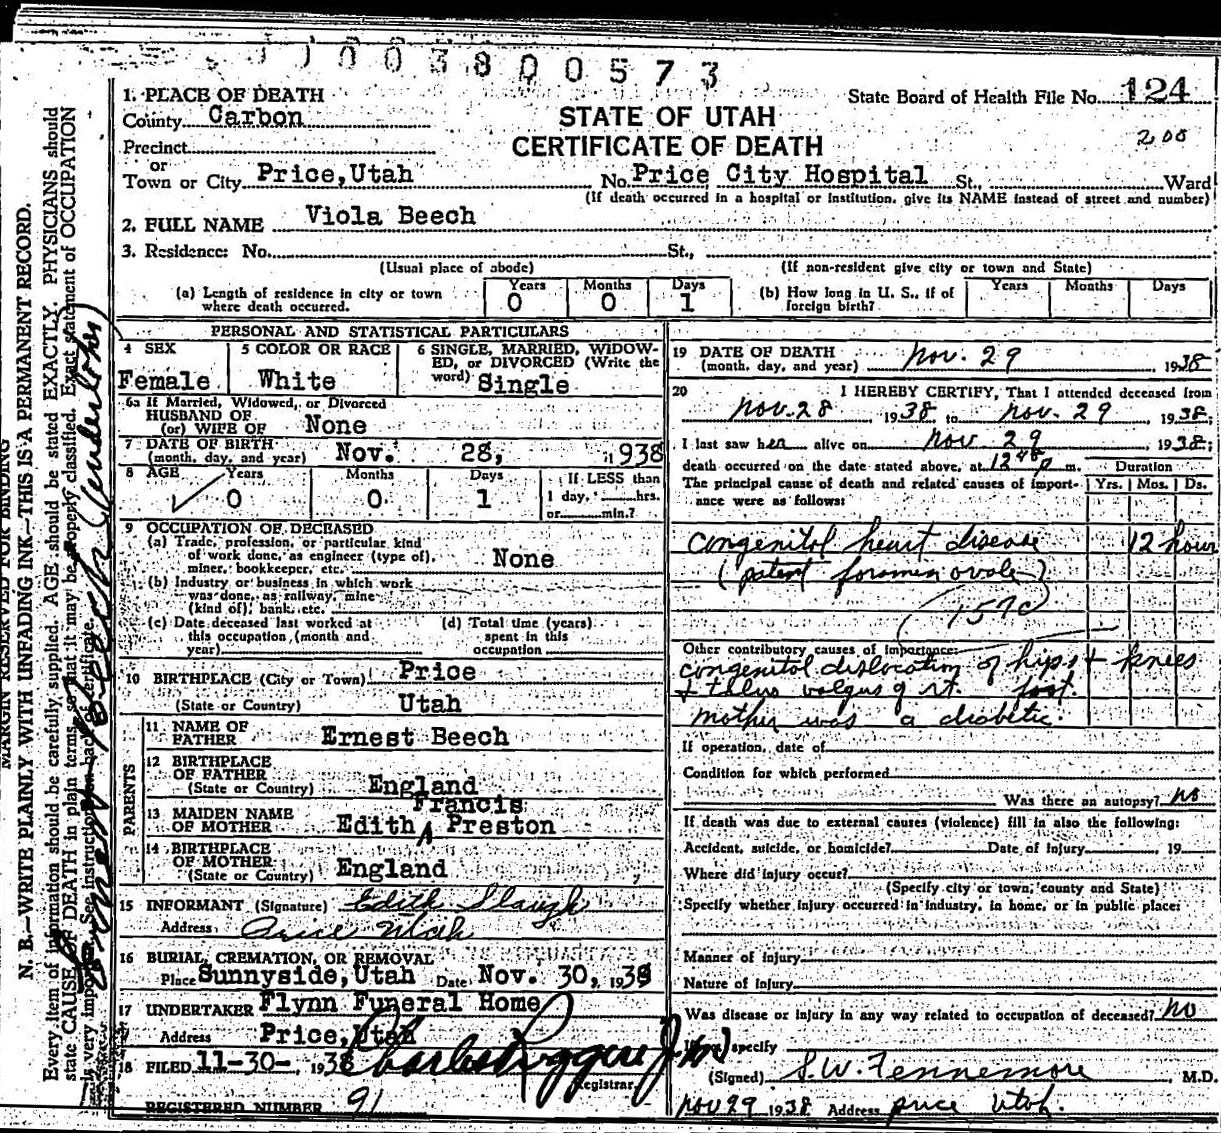 003800573
1. PLACE OF DEATH
County Carbon
State Board of Health File No. 124
STATE OF UTAH
CERTIFICATE OF DEATH
200
Precinct
or
Town or City Price, Utah No. Price City Hospital St., Ward
(If death occurred in a hospital or institution, give its NAME instead of street and number)
2. FULL NAME Viola Beech
3. Residence: No. St.,
(Usual place of abode) (If non-resident give city or town and State)
(a) Length of residence in city or town where death occurred. Years 0 Months 0 Days 1
(b) How long in U. S., if of foreign birth? Years Months Days
PERSONAL AND STATISTICAL PARTICULARS
4 SEX Female
5 COLOR OR RACE White
6 SINGLE, MARRIED, WIDOWED, or DIVORCED (Write the word) Single
6a If Married, Widowed, or Divorced
HUSBAND OF
(or) WIFE OF None
7 DATE OF BIRTH
(month, day, and year) Nov. 28, 1938
8 AGE Years 0 Months 0 Days 1 If LESS than
1 day, hrs.
or min.?
9 OCCUPATION OF DECEASED
(a) Trade, profession, or particular kind
of work done, as engineer (type of),
miner, bookkeeper, etc. None
(b) Industry or business in which work
was done, as railway, mine
(kind of), bank, etc.
(c) Date deceased last worked at
this occupation (month and
year)
(d) Total time (years)
spent in this
occupation
10 BIRTHPLACE (City or Town) Price
(State or Country) Utah
PARENTS
11 NAME OF
FATHER Ernest Beech
12 BIRTHPLACE
OF FATHER
(State or Country) England
13 MAIDEN NAME
OF MOTHER Edith Francis Preston
14 BIRTHPLACE
OF MOTHER
(State or Country) England
15 INFORMANT (Signature) Edith Slaugh
Address Price Utah
16 BURIAL, CREMATION, OR REMOVAL
Place Sunnyside, Utah Date Nov. 30, 1938
17 UNDERTAKER Flynn Funeral Home
Address Price, Utah
18 FILED 11-30-, 1938
Registrar.
REGISTERED NUMBER 91
19 DATE OF DEATH
(month, day, and year) Nov. 29 1938
20 I HEREBY CERTIFY, That I attended deceased from
Nov. 28 1938 to Nov. 29 1938;
I last saw her alive on Nov 29 1938;
death occurred on the date stated above, at 12 P m.
Duration
The principal cause of death and related causes of importance were as follows:
Yrs. Mos. Ds.
Congenitol heart disease 12 hour
(patent foramen ovale)
157c
Other contributory causes of importance:
congenitol dislocation of hips + knees
+ talus valgus of rt. foot.
Mother was a diabetic.
If operation, date of
Condition for which performed
Was there an autopsy? no
If death was due to external causes (violence) fill in also the following:
Accident, suicide, or homicide? Date of injury 19
Where did injury occur?
(Specify city or town, county and State)
Specify whether injury occurred in industry, in home, or in public place:
Manner of injury
Nature of injury
Was disease or injury in any way related to occupation of deceased? no
If so, specify
(Signed) S. W. Fennemore, M.D.
Nov 29 1938 Address Price Utah.
MARGIN RESERVED FOR BINDING
N. B.—WRITE PLAINLY WITH UNFADING INK—THIS IS A PERMANENT RECORD.
Every item of information should be carefully supplied. AGE should be stated EXACTLY. PHYSICIANS should
state CAUSE OF DEATH in plain terms, so that it may be properly classified. Exact statement of OCCUPATION
is very important. See instructions on back of certificate.